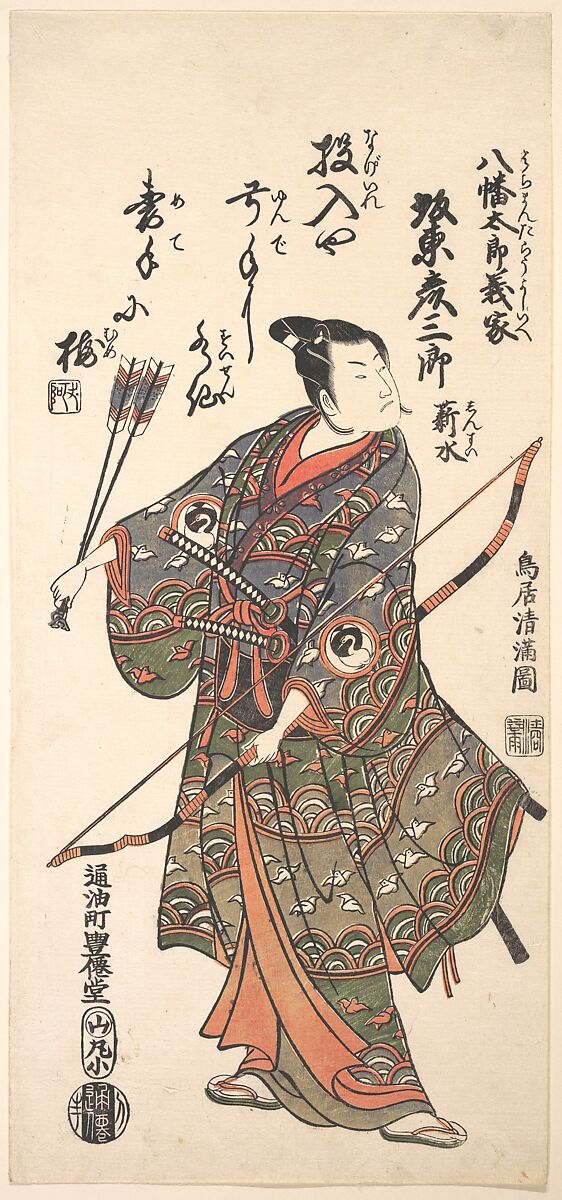 八幡太郎義家
はちまんたらうよしいへ
坂東彦三郎
薪水
しんすい
投入や
なげいれ
弓手に
ゆんで
水仙
すいせん
妻手に
めて
梅
むめ
鳥居清満圖
通油町豊僊堂
山
丸小